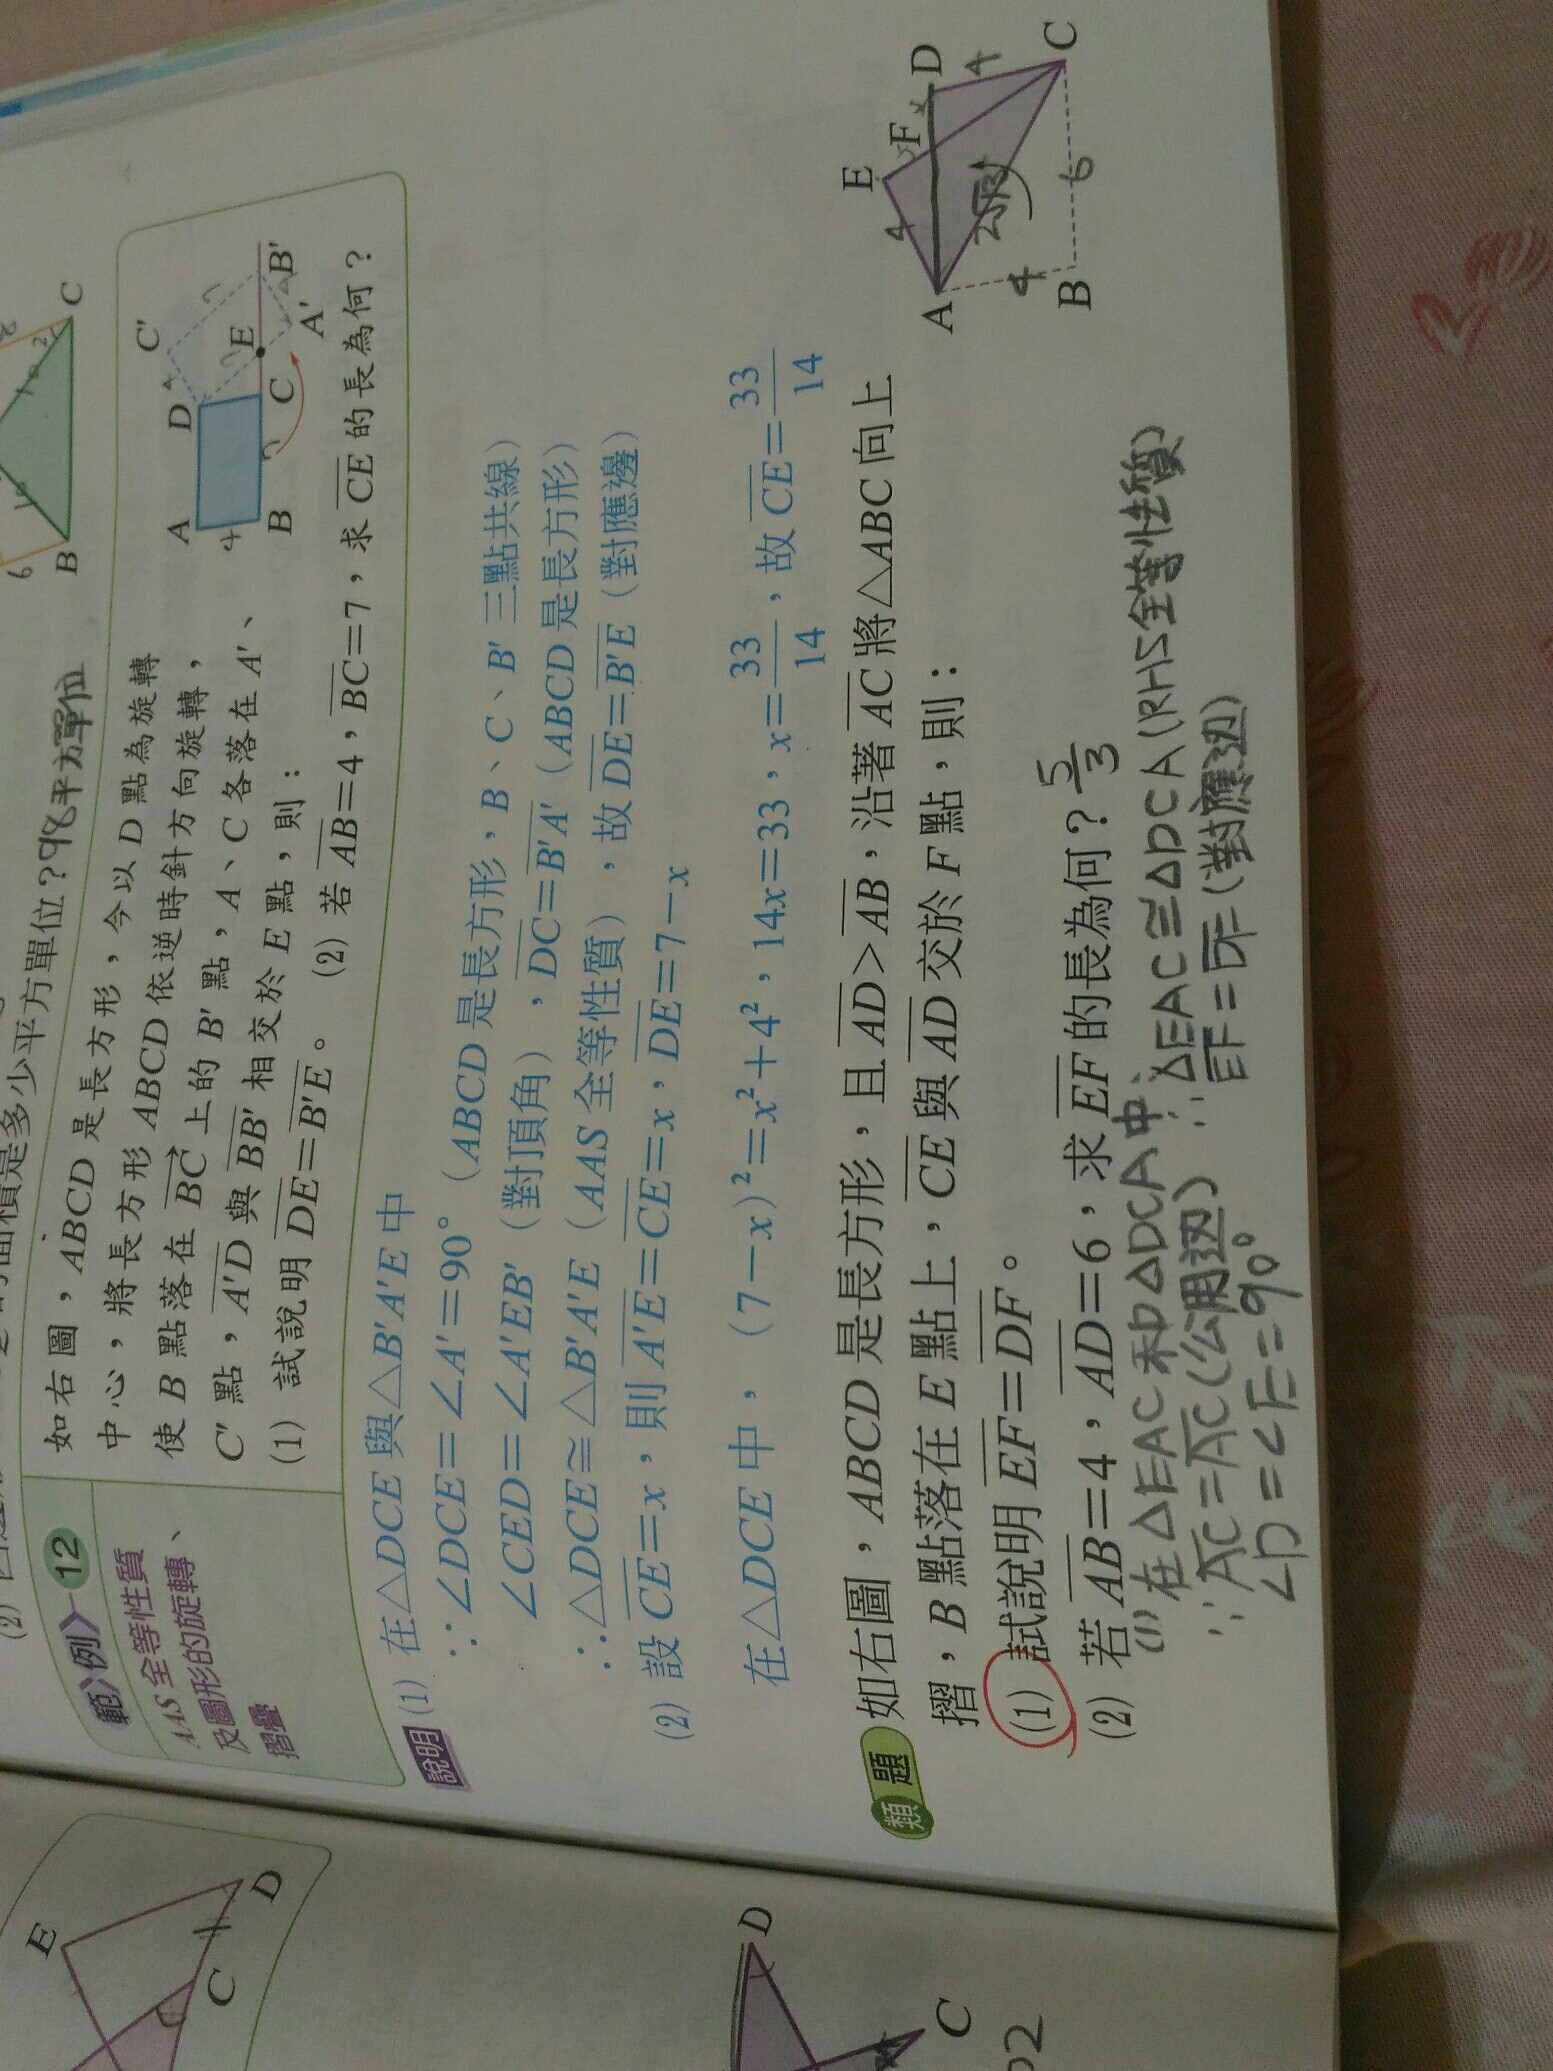 (2)
面積是多少平方單位？98平方單位
6
B
C
2
範例 12
AAS 全等性質
及圖形的旋轉、
摺疊
如右圖，ABCD 是長方形，今以 D 點為旋轉
中心，將長方形 ABCD 依逆時針方向旋轉，
使 B 點落在 BC 上的 B' 點，A、C 各落在 A'、
C' 點，A'D 與 BB' 相交於 E 點，則：
(1) 試說明 DE=B'E。 (2) 若 AB=4，BC=7，求 CE 的長為何？
A
D
C'
4
B
C
E
A'
B'
說明 (1) 在△DCE 與△B'A'E 中
∵∠DCE=∠A'=90°（ABCD 是長方形，B、C、B' 三點共線）
∠CED=∠A'EB'（對頂角），DC=B'A'（ABCD 是長方形）
∴△DCE≅△B'A'E（AAS 全等性質），故 DE=B'E（對應邊）
(2) 設 CE=x，則 A'E=CE=x，DE=7−x
在△DCE 中，(7−x)²=x²+4²，14x=33，x=33/14，故 CE=33/14
類題 如右圖，ABCD 是長方形，且 AD>AB，沿著 AC 將△ABC 向上
摺，B 點落在 E 點上，CE 與 AD 交於 F 點，則：
(1) 試說明 EF=DF。
(2) 若 AB=4，AD=6，求 EF 的長為何？5/3
A
E
F
D
C
B
4
4
4
6
2√13
(1) 在△EAC 和△DCA 中
∵AC=AC(公用边)
∠D=∠E=90°
∴△EAC≅△DCA(RHS全等性質)
EF=DF(對應边)
E
D
C
D
C
02